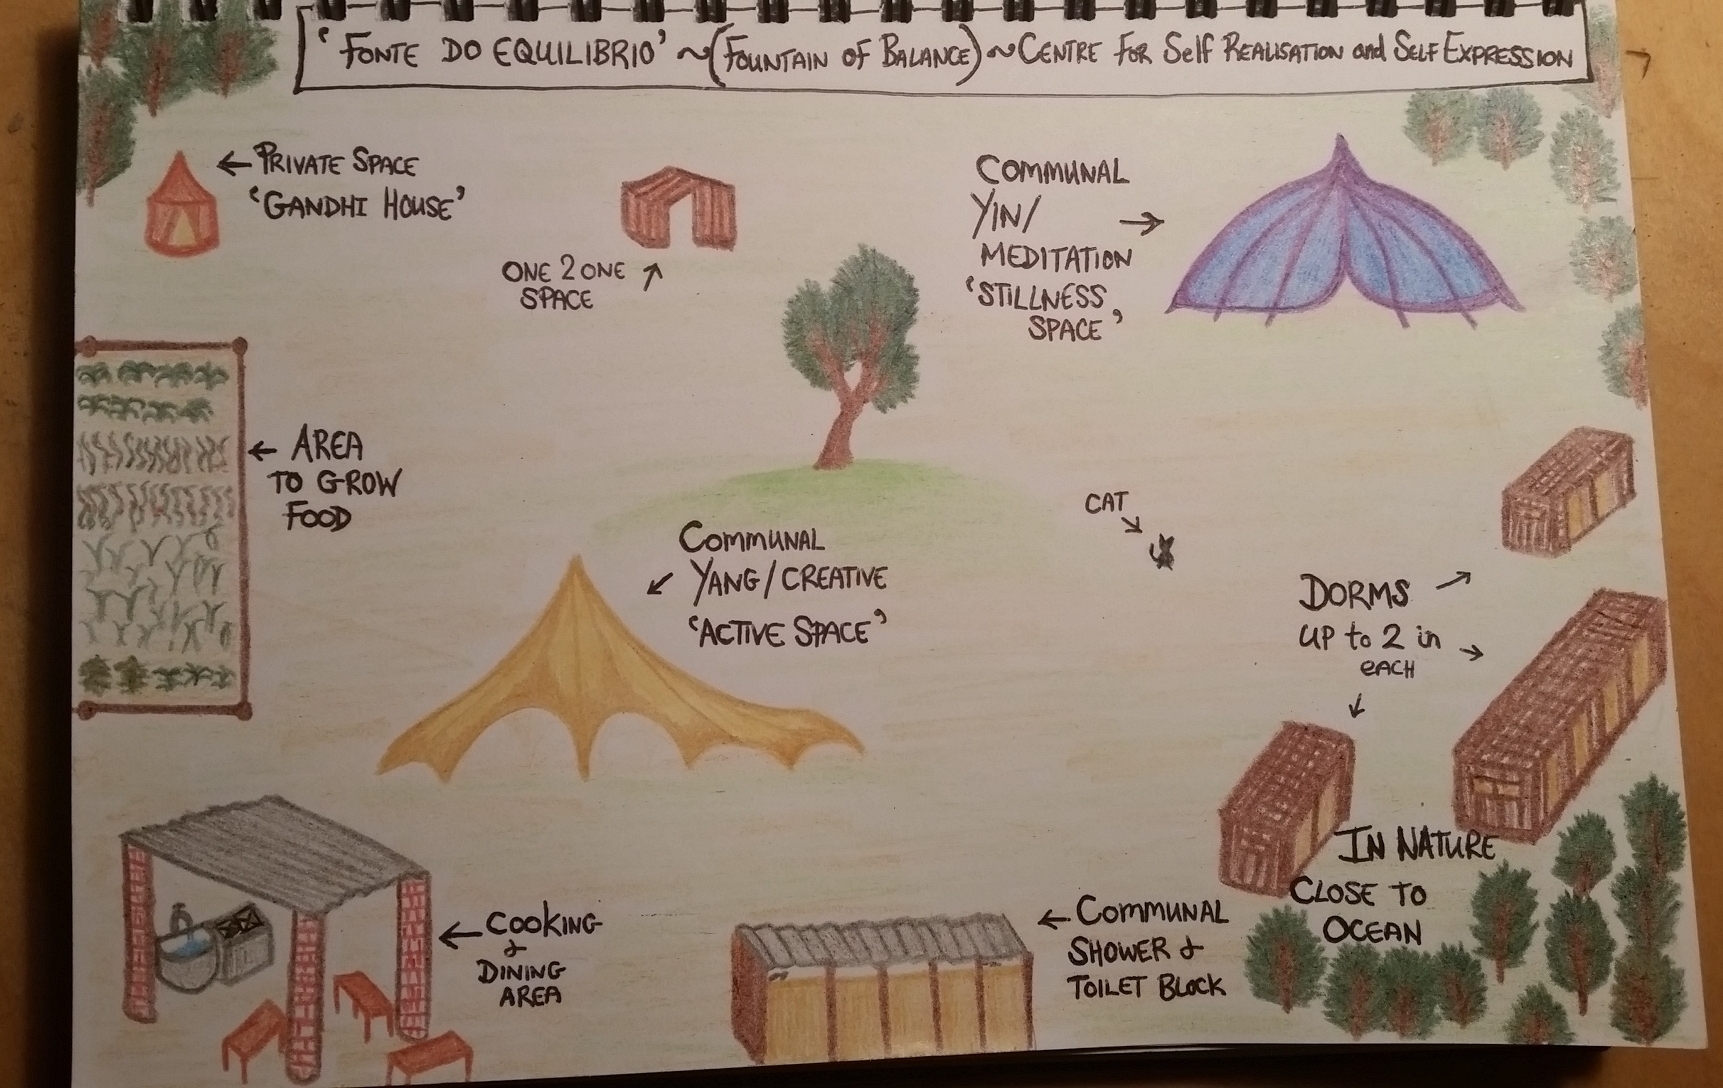 'FONTE DO EQUILIBRIO' ~ (FOUNTAIN OF BALANCE) ~ CENTRE FOR Self REALISATION and SELF EXPRESSION
← PRIVATE SPACE
'GANDHI HOUSE'
ONE 2 ONE ↑
SPACE
COMMUNAL
YIN/ →
MEDITATION
'STILLNESS
SPACE'
← AREA
TO GROW
FOOD
COMMUNAL
YANG/CREATIVE
'ACTIVE SPACE'
CAT
DORMS
UP to 2 in
eACH
IN NATURE
CLOSE TO
OCEAN
← COOKING
&
DINING
AREA
← COMMUNAL
SHOWER &
TOILET BLOCK